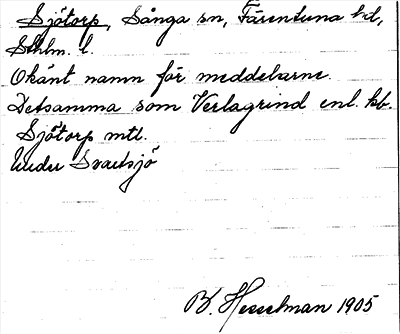 Sjötorp, Sånga sn, Färentuna hd,
Sthlm. l.
Okänt namn för meddelarne.
Detsamma som Verlagrind enl. kb.
Sjötorp mtl.
Under Svartsjö
B. Hesselman 1905